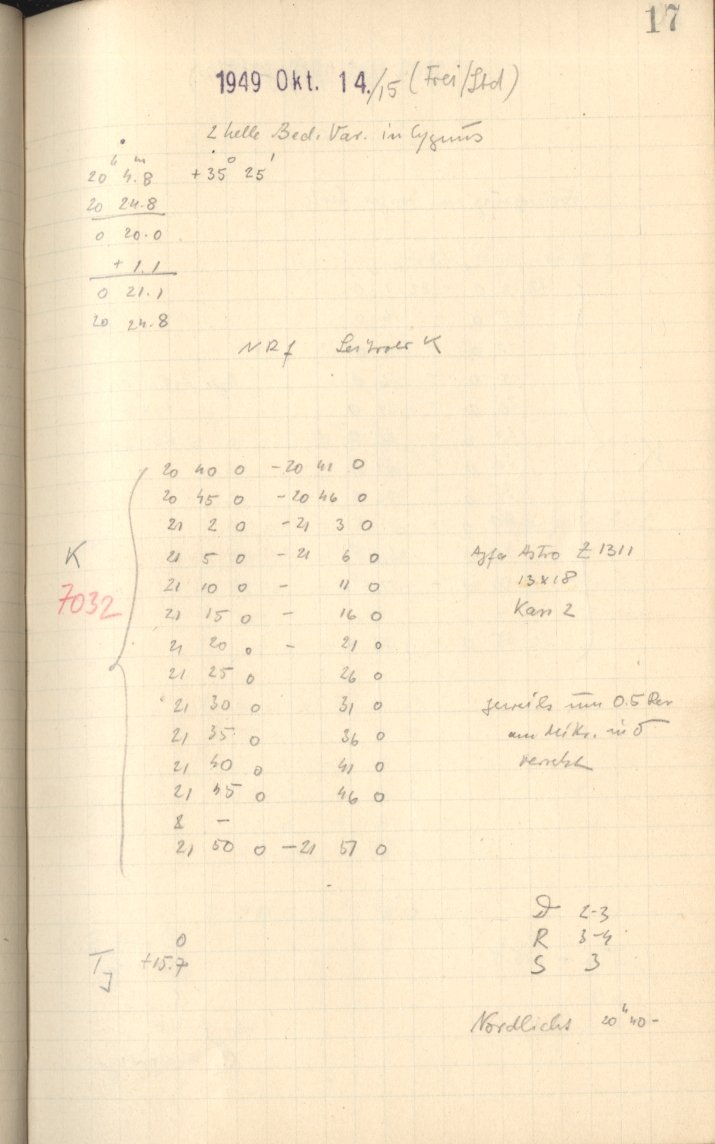 17
1949 Okt. 14./15 (Frei/Std)
2 helle Bed. Var. in Cygnus
20ʰ 4.8ᵐ +35° 25'
20 24.8
0 20.0
+ 1.1
0 21.1
20 24.8
N R f K
20 40 0 - 20 41 0
20 45 0 - 20 46 0
21 2 0 - 21 3 0
K 21 5 0 - 21 6 0 Agfa Astro Z 1311
7032 21 10 0 - 11 0 13x18
21 15 0 - 16 0 Kass 2
21 20 0 - 21 0
21 25 0 26 0
21 30 0 31 0 jeweils um 0.5 Rev
21 35 0 36 0 in δ
21 40 0 41 0 versetzt
21 45 0 46 0
8 -
21 50 0 - 21 51 0
D 2-3
T_J +15.7° R 3-4
S 3
Nordlicht 20ʰ 40-